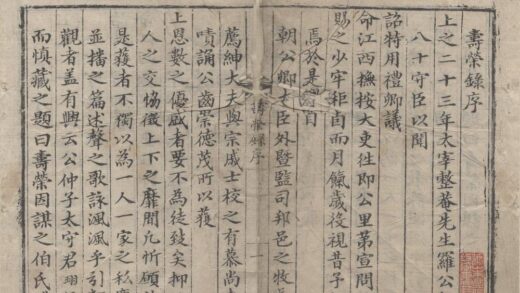 壽榮錄序
上之二十三年太宰整菴先生羅公
八十守臣以聞
詔特用禮卿議
命江西撫按大吏徃即公里第宣問
賜之少牢秬卣而月餼歲役視昔子
焉於是自
朝公卿大臣外曁監司邦邑之牧
壽榮錄序
薦紳大夫與宗戚士校之有慕尚
嘖誦公齒崇德茂所以獲
上恩數之優者要不為徒致矣抑
人之交協徵上下之靡間凡祈
是獲者不獨以為一人一家之私
並播之篇述聲之歌詠渢渢乎引
觀者盖有興云公仲子太守君
而慎藏之題曰壽榮因謀之伯氏